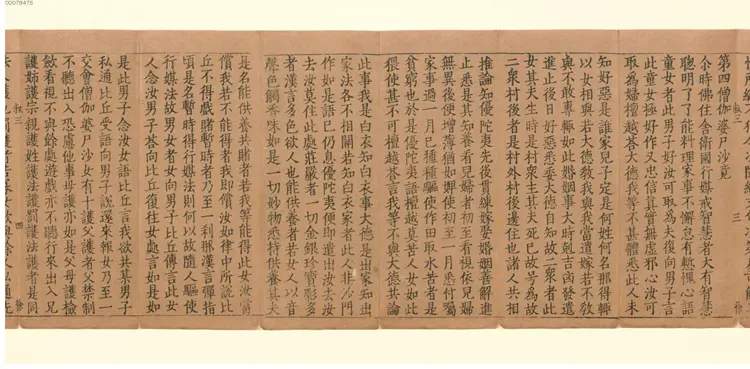 00078475
第四僧伽婆尸沙竟
尒時佛住舍衛國行媒戒智慧者大有智慧
聰明了了能料理家事不懈怠有慙愧心語
童女者此男子好汝可取為夫復向男子言
此童女極好作又忠信真實無虛邪心汝可
取為婦檀越荅大德我等不甚體悉此人未
三
知好惡是誰家兒子定是何姓何名那得輙
以女相與若大德教我與我當還嫁若不教
與不敢專輙如此婚姻事大時剋吉凶發遣
進止後日好惡悉委大德自知故二衆者此
女其夫生時是村衆主其夫死已故号為故
二衆村後者是村外村後邊住也諸人共相
推論知優陀夷先後貫練嫁娶婚姻善解進
止悉是其知養看兒婦者初至看視依兒婦
無異後便增薄猶如婢使初至一月悉付囑
家事過一月已種種驅使作田取水苦者是
貧窮也於是優陀夷語檀越莫苦人女如此
猥使甚不可檀越荅言我等不與大德共論
此事我是白衣知白衣事大德是出家知出
家法各不相關若知白衣家者此人非沙門
作如是語已仍息優陀夷便即遣出汝去汝
去汝莫住此處莊嚴者一切金銀珍寶形多
者漢言多色欲人也能供養者若女人以音
聲色觸香味如是一切妙物悉持供養其夫
是名能供養共賭者若我等能得此女汝當
償我若不能得者我即償汝如律中所說比
丘不得戲賭暫時者乃至一刹那漢言彈指
頃是名暫時得行媒法則何以故隨人驅使
行媒法故男女者女向男子比丘傳言此女
人念汝男子荅向比丘復往女處言如是如
是此男子念汝女語比丘言我欲共某男子
私通比丘受語向男子說還來報女乃至一
交會僧伽婆尸沙女有十護父護者父禁制
不聽出入恐慮他事母護亦如是父母護檢
斂看視不與餘處遊戲亦不聽行來出入兄
護姉護宗親護姓護法護罰護法護者是同
四